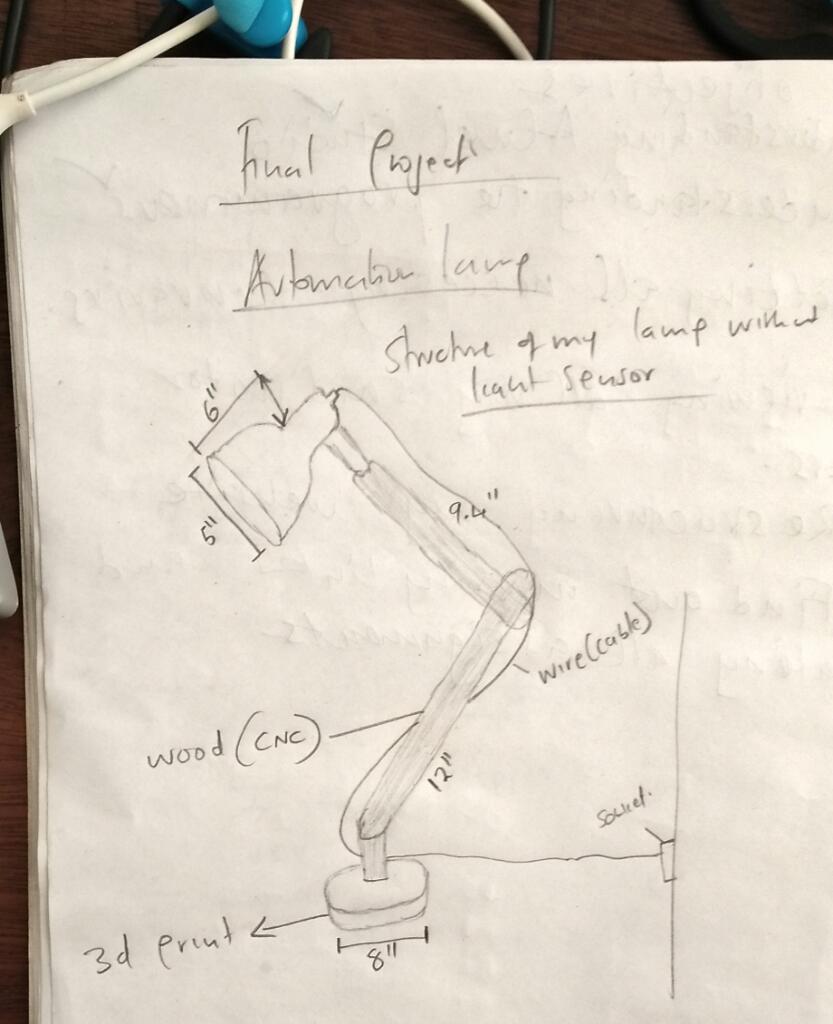 Final Project
Automation lamp
Structure of my lamp without
light sensor
6"
5"
9.4"
wire(cable)
wood (CNC)
12"
socket.
3d print
8"